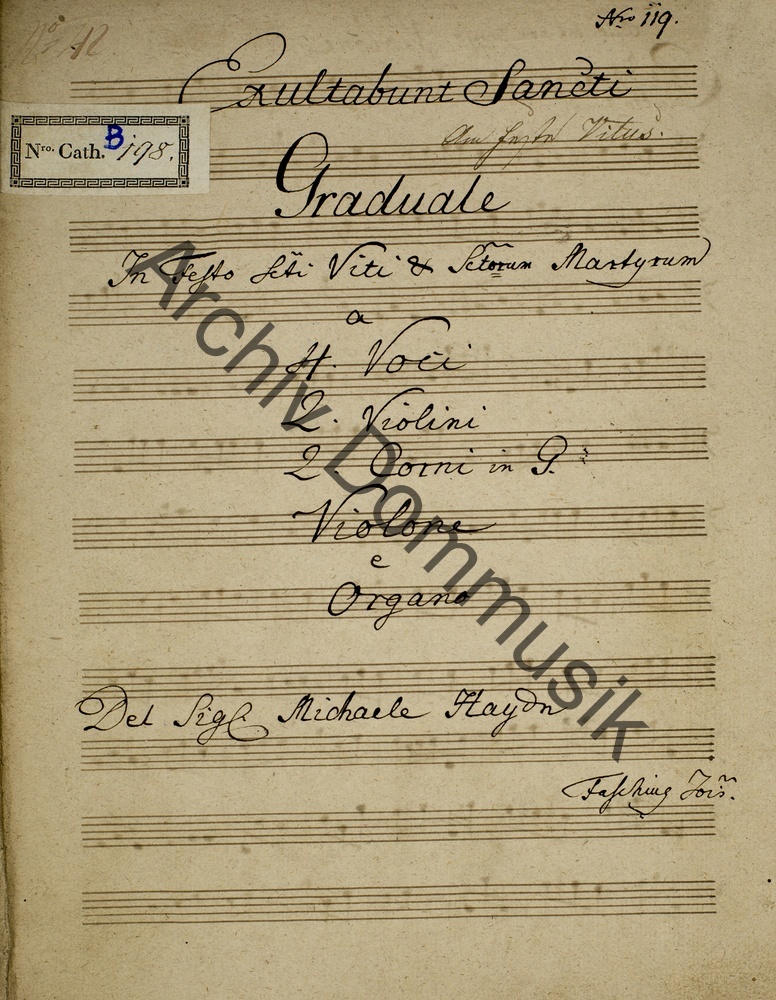 Nro 119.
No 42
Exultabunt Sancti
Nro. Cath. B 198.
Am Feste Vitus.
Graduale
In Festo Scti Viti & Sctorum Martyrum
a
4. Voci
2. Violini
2. Corni in G.
Violone
e
Organo
Del Sigl. Michaele Haydn
Fasching Jois.
Archiv Dommusik